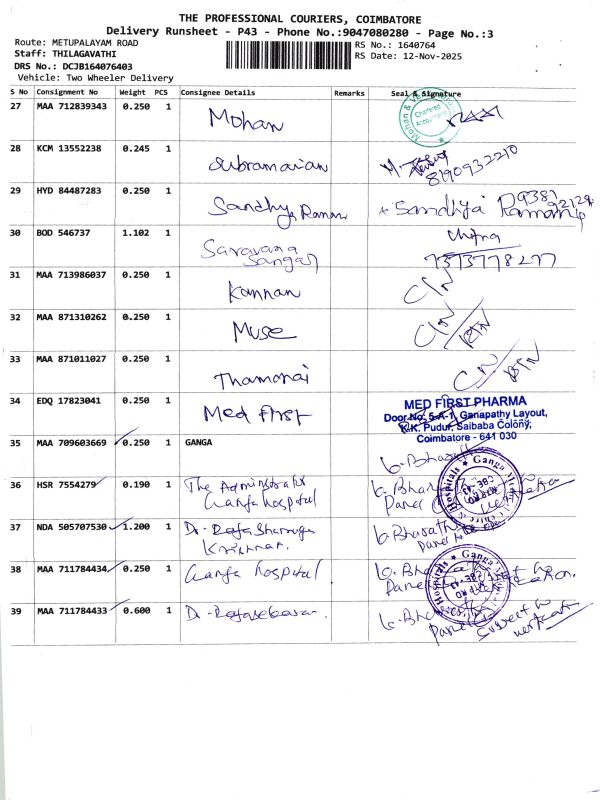 THE PROFESSIONAL COURIERS, COIMBATORE
Delivery Runsheet - P43 - Phone No.:9047080280 - Page No.:3
Route: METUPALAYAM ROAD
Staff: THILAGAVATHI
DRS No.: DCJB164076403
Vehicle: Two Wheeler Delivery
RS No.: 1640764
RS Date: 12-Nov-2025
S No Consignment No Weight PCS Consignee Details Remarks Seal & Signature
27 MAA 712839343 0.250 1 Mohan
Chartered Accountants
28 KCM 13552238 0.245 1 Subramanian 8190932210
29 HYD 84487283 0.250 1 Sandhya Raman Sandhiya Raman
30 BOD 546737 1.102 1 Saravana Sangar Chitra
7373778277
31 MAA 713986037 0.250 1 Kannan C/N
32 MAA 871310262 0.250 1 Muse C/N/RTN
33 MAA 871011027 0.250 1 Thamarai C/N/RTN
34 EDQ 17823041 0.250 1 Med first
MED FIRST PHARMA
Door No: 5-A-1, Ganapathy Layout,
K.K. Pudur, Saibaba Colony,
Coimbatore - 641 030
35 MAA 709603669 0.250 1 GANGA G. Bharath
36 HSR 7554279 0.190 1 The Administrator
Ganga hospital
37 NDA 505707530 1.200 1 Dr. Raja Shanmuga
Krishnan. G. Bharath
38 MAA 711784434 0.250 1 Ganga hospital
39 MAA 711784433 0.600 1 Dr. Rajasekaran